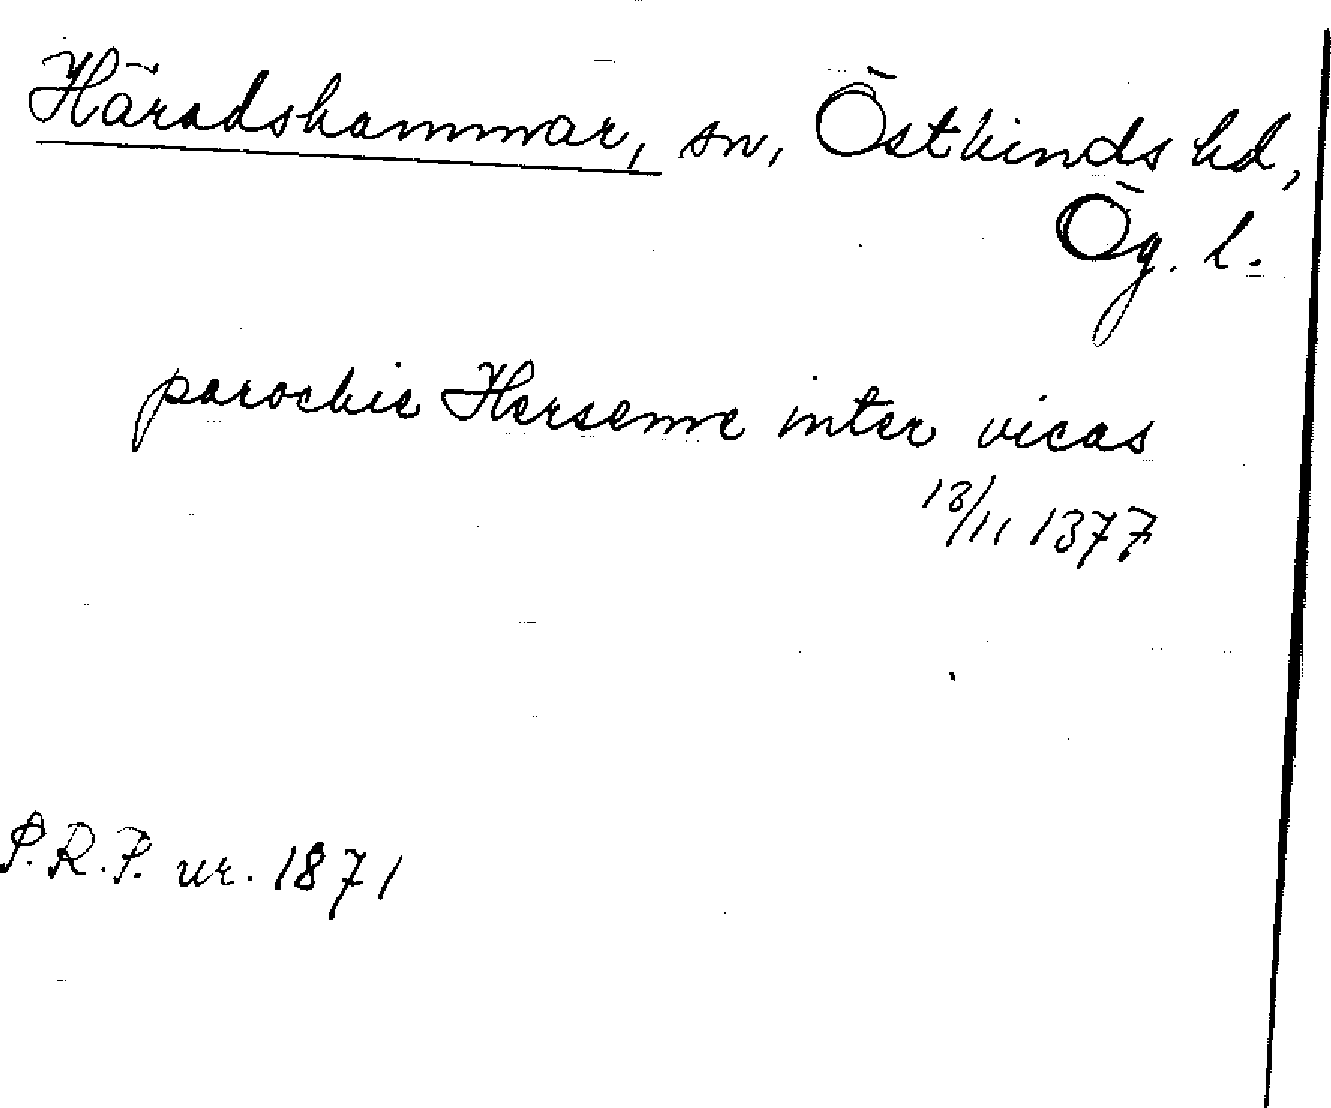 Häradshammar, sn, Östkinds hd,
Ög. l.
parochie Herseme inter vicas
13/11 1377
P.R.P. nr. 1871